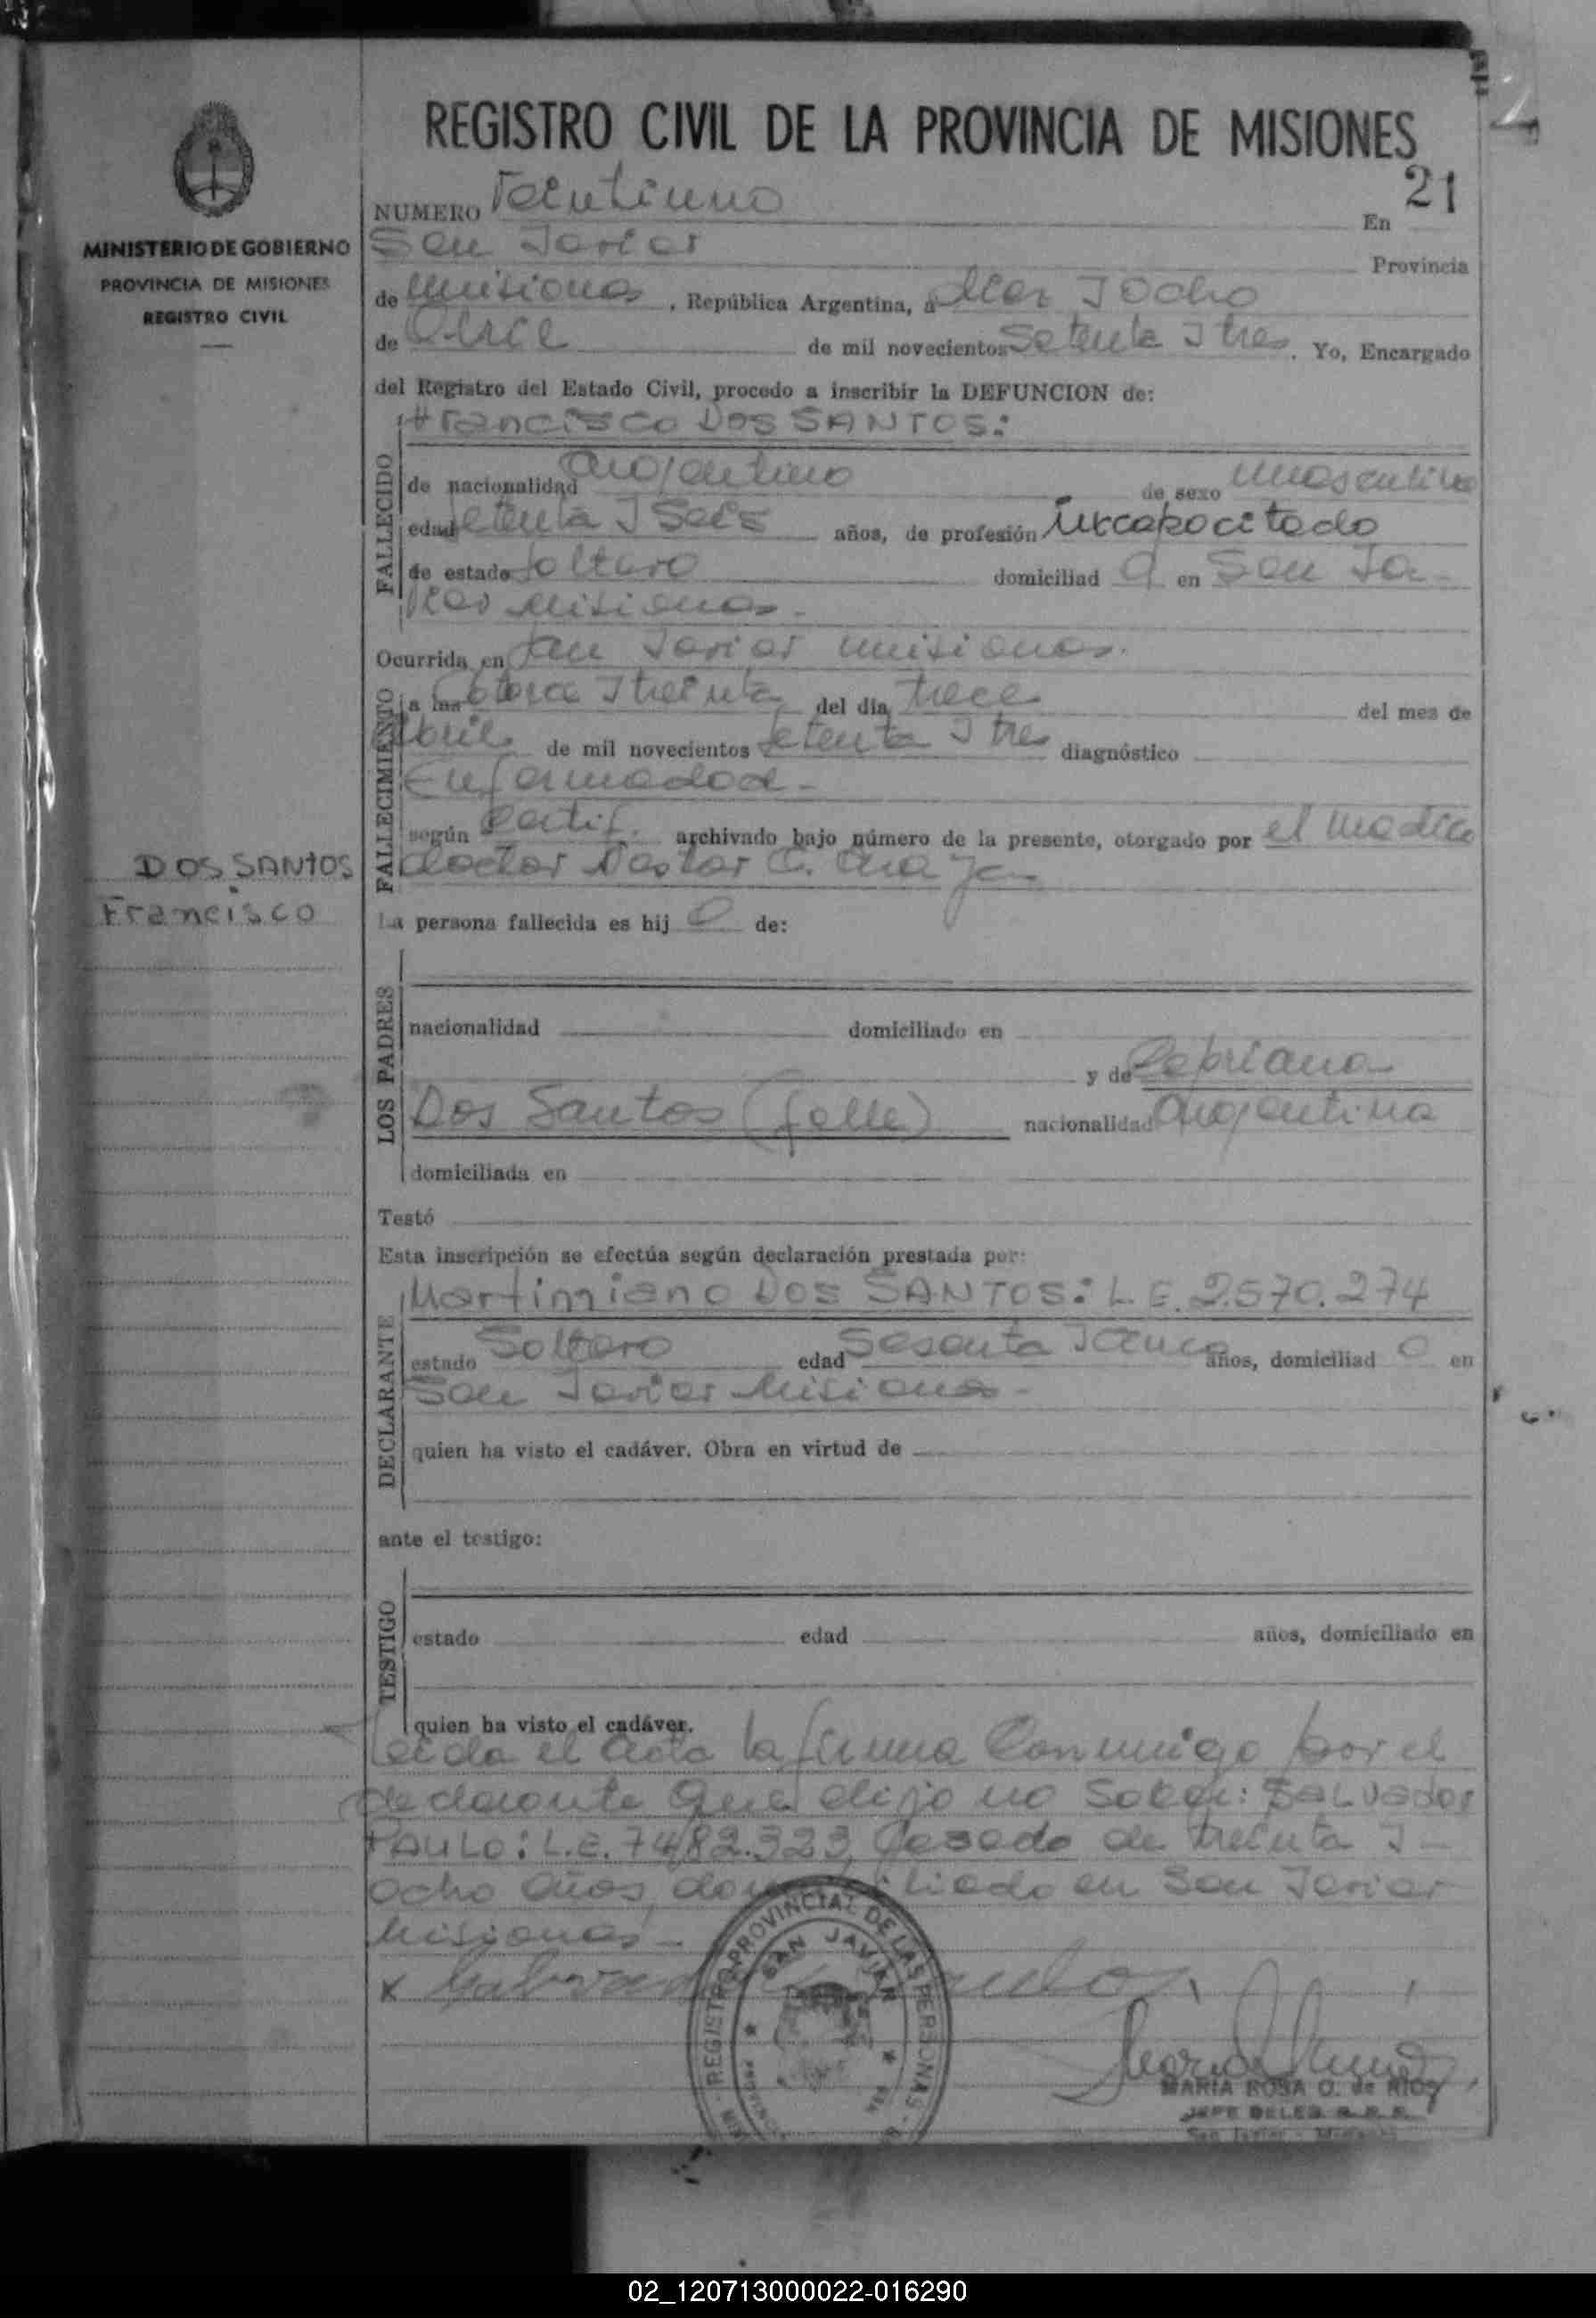 REGISTRO CIVIL DE LA PROVINCIA DE MISIONES
21
MINISTERIO DE GOBIERNO
PROVINCIA DE MISIONES
REGISTRO CIVIL
NUMERO Veintiuno En
San Javier Provincia
de Misiones, República Argentina, a diez y ocho
de de mil novecientos Setenta y tres. Yo, Encargado
del Registro del Estado Civil, procedo a inscribir la DEFUNCION de:
Francisco DOS SANTOS:
FALLECIDO
de nacionalidad argentino de sexo masculino
edad setenta y seis años, de profesión incapacitado
de estado soltero domiciliad o en San Ja-
vier Misiones.-
Ocurrida en San Javier Misiones.
FALLECIMIENTO
a las catorce y treinta del día trece del mes de
abril de mil novecientos setenta y tres diagnóstico
Enfermedad -
según Certif. archivado bajo número de la presente, otorgado por el medico
doctor C.
DOS SANTOS
Francisco
La persona fallecida es hij o de:
LOS PADRES
nacionalidad domiciliado en
y de Cipriana
Dos Santos (falle) nacionalidad argentina
domiciliada en
Testó
Esta inscripción se efectúa según declaración prestada por:
Martimiano DOS SANTOS: L.E. 2.570.274
DECLARANTE
estado Soltero edad Sesenta y años, domiciliad o en
San Javier Misiones -
quien ha visto el cadáver. Obra en virtud de
ante el testigo:
TESTIGO
estado edad años, domiciliado en
quien ha visto el cadáver.
Leida el acta la firma conmigo por el
declarante que dijo no saber: SALVADOR
PAULO: L.E. 7482.323, casado de treinta y -
ocho años, domiciliado en San Javier
Misiones -
x
REGISTRO PROVINCIAL DE LAS PERSONAS
SAN JAVIER
MARIA ROSA O. de RIOS
JEFE DELEG. R.P.P.
San Javier - Misiones
02_120713000022-016290